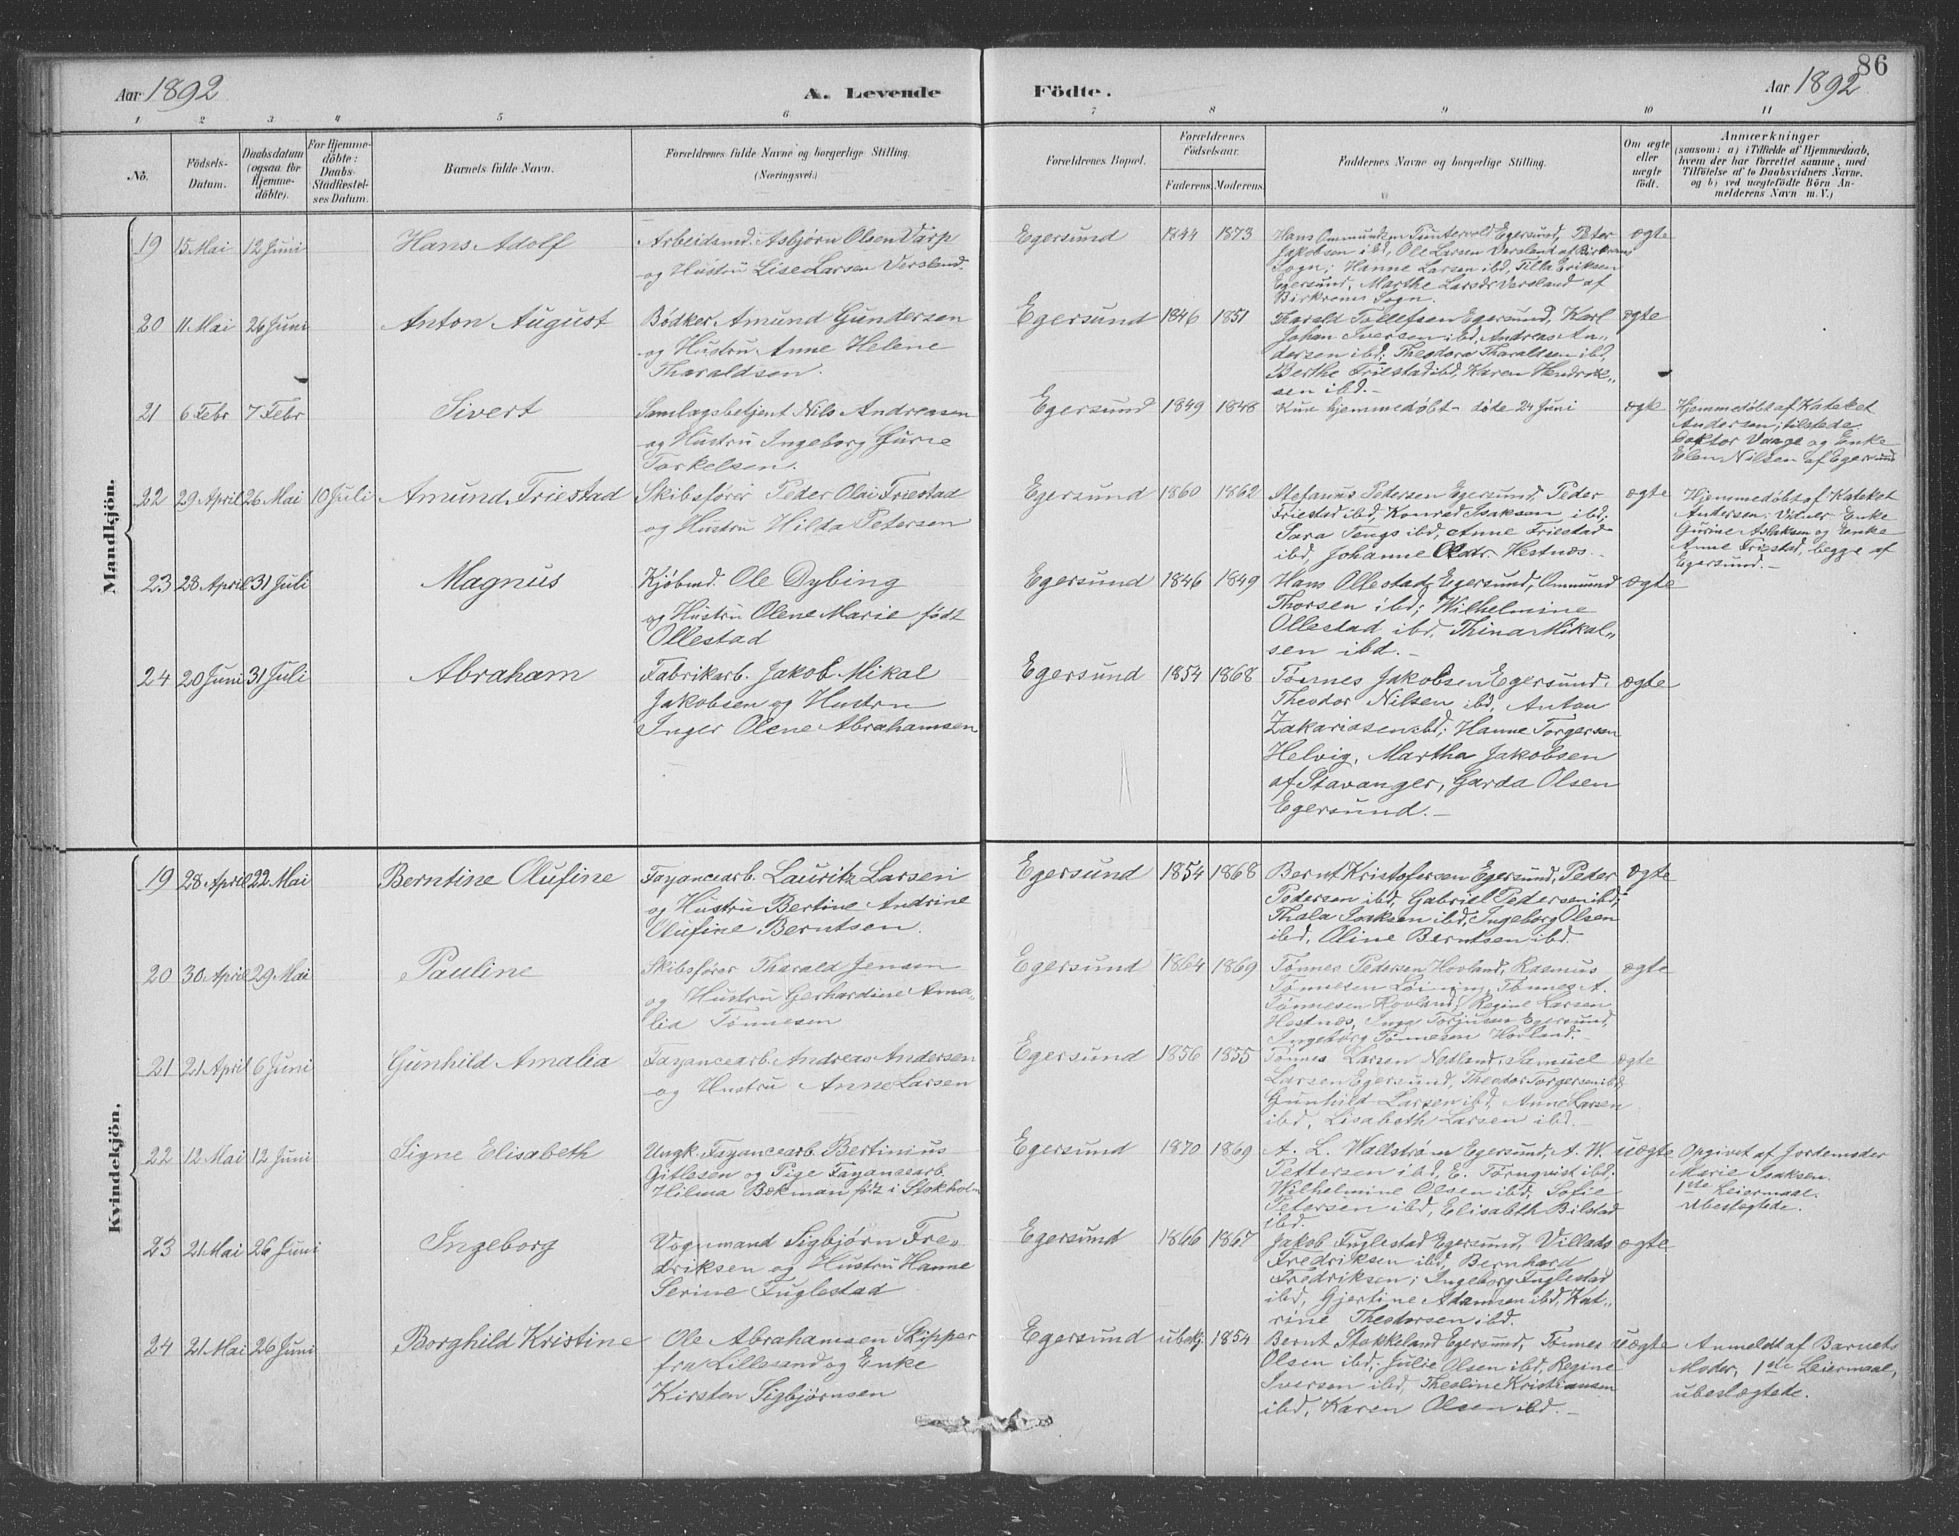 86
Aar 1892 A. Levende Födte. Aar 1892
1 2 3 4 5 6 7 8 9 10 11
No.
Födsels-
Datum.
Daabsdatum
(ogsaa for
Hjemme-
döbte).
For Hjemme-
döbte:
Daabs-
Stadfæstel-
ses Datum.
Barnets fulde Navn.
Forældrenes fulde Navne og borgerlige Stilling.
(Næringsvei.)
Forældrenes Bopæl.
Forældrenes
Födselsaar.
Faderens. Moderens.
Faddernes Navne og borgerlige Stilling.
Om ægte
eller
uægte
födt.
Anmærkninger
(saasom: a) i Tilfælde af Hjemmedaab,
hvem der har forrettet samme, med
Tilföielse af to Daabsvidners Navne.
og b) ved uægtefödte Börn An-
melderens Navn m. V.)
Mandkjön.
19 15 Mai 12 Juni Hans Adolf
Arbeidsmd. Asbjørn Olsen Varp
og Hustru Lise Larsen Versland.
Egersund 1844 1873
Hans Ommundsen Tuntervold Egersund, Peter
Jakobsen ibd, Ole Larsen Versland af Birkrem
Sogn; Hanne Larsen ibd, Tilla Eriksen
Egersund, Marthe Larsdr Versland af
Birkrems Sogn.
ægte
20 11 Mai 26 Juni Anton August
Bødker Amund Gundersen
og Hustru Anne Helene
Tharaldsen.
Egersund 1846 1851
Tharald Tollefsen Egersund, Karl
Johan Iversen ibd, Andreas An-
dersen ibd; Theodora Tharaldsen ibd,
Berthe Friestad ibd, Karen Hendrik-
sen ibd.-
ægte
21 6 Febr 7 Febr Sivert
Samlagsbetjent Nils Andreasen
og Hustru Ingeborg Gurie
Torkelsen.
Egersund 1849 1848
Kun hjemmedøbt - døde 24 Juni
ægte
Hjemmedøbt af Kateket
Andersen; tilstede
Doktor Vaage og Enke
Elen Nilsen af Egersund
22 29 April 26 Mai 10 Juli Amund Friestad
Skibsfører Peder Olai Friestad
og Hustru Hilda Petersen
Egersund 1860 1862
Stefanus Petersen Egersund, Peder
Friestad ibd, Konrad Isaksen ibd;
Sara Tengs ibd, Anne Friestad
ibd, Johanne Olsdr Hestnes.-
ægte
Hjemmedøbt af Kateket
Andersen; Vidner Enke
Gurine Aslaksen og Enke
Anne Friestad, begge af
Egersund.-
23 28 April 31 Juli Magnus
Kjøbmd. Ole Dybing
og Hustru Olene Marie født
Ollestad
Egersund 1846 1849
Hans Ollestad Egersund, Ommund
Thorsen ibd; Wilhelmine
Ollestad ibd, Thina Mikal-
sen ibd.-
ægte
24 20 Juni 31 Juli Abraham
Fabrikarb. Jakob Mikal
Jakobsen og Hustru
Inger Olene Abrahamsen
Egersund 1854 1868
Tønnes Jakobsen Egersund,
Theodor Nilsen ibd, Anton
Zakariasen ibd; Hanne Torgersen
Helvig, Martha Jakobsen
af Stavanger, Garda Olsen
Egersund.-
ægte
Kvindekjön.
19 28 April 22 Mai Berntine Olufine
Fayancearb. Lauritz Larsen
og Hustru Bertine Andrine
Olufine Berntsen.
Egersund 1854 1868
Bernt Kristofersen Egersund, Peder
Pedersen ibd, Gabriel Pedersen ibd;
Thala Isaksen ibd, Ingeborg Olsen
ibd, Oline Berntsen ibd.
ægte
20 30 April 29 Mai Pauline
Skibsfører Tharald Jensen
og Hustru Gerhardine Ama-
lia Tønnesen
Egersund 1864 1869
Tønnes Pedersen Hovland, Rasmus
Tønnesen Tønnes A.
Tønnesen Hovland; Regine Larsen
Hestnes, Inga Torjusen Egersund,
Ingeborg Tønnesen Hovland.-
ægte
21 21 April 6 Juni Gunhild Amalia
Fayancearb. Andreas Andersen
og Hustru Anne Larsen
Egersund 1856 1855
Tønnes Larsen Netland, Samuel
Larsen Egersund, Theodor Torgersen ibd;
Gunhild Larsen ibd, Anne Larsen
ibd, Lisabeth Larsen ibd.-
ægte
22 12 Mai 12 Juni Signe Elisabeth
Ungk. Fayancearb. Bertinius
Gitlesen og Pige Fayancearb.
Hilma Bekman født i Stokholm
Egersund 1870 1869
A. L. Wallstrøm Egersund, A. W.
Pettersen ibd, E. Törnqvist ibd;
Wilhelmine Olsen ibd, Sofie
Petersen ibd, Elisabeth Bilstad
ibd.
uægte
Opgivet af Jordemoder
Marie Isaksen.
1ste Leiermaal.
ubeslægtede.
23 21 Mai 26 Juni Ingeborg
Vognmand Sigbjørn Fre-
driksen og Hustru Hanne
Serine Fuglestad
Egersund 1866 1867
Jakob Fuglestad Egersund, Villads
Fredriksen ibd, Bernhard
Fredriksen; Ingeborg Fuglestad
ibd, Gjertine Adamsen ibd, Kat-
rine Theodorsen ibd.
ægte
24 21 Mai 26 Juni Borghild Kristine
Ole Abrahamsen Skipper
fra Lillesand og Enke
Kirsten Sigbjørnsen
Egersund ubekj 1854
Bernt Stokkeland Egersund, Tønnes
Olsen ibd; Julie Olsen ibd, Regine
Iversen ibd, Theoline Kristiansen
ibd, Karen Olsen ibd.-
uægte
Anmeldt af Barnets
Moder, 1ste Leiermaal,
ubeslægtede.